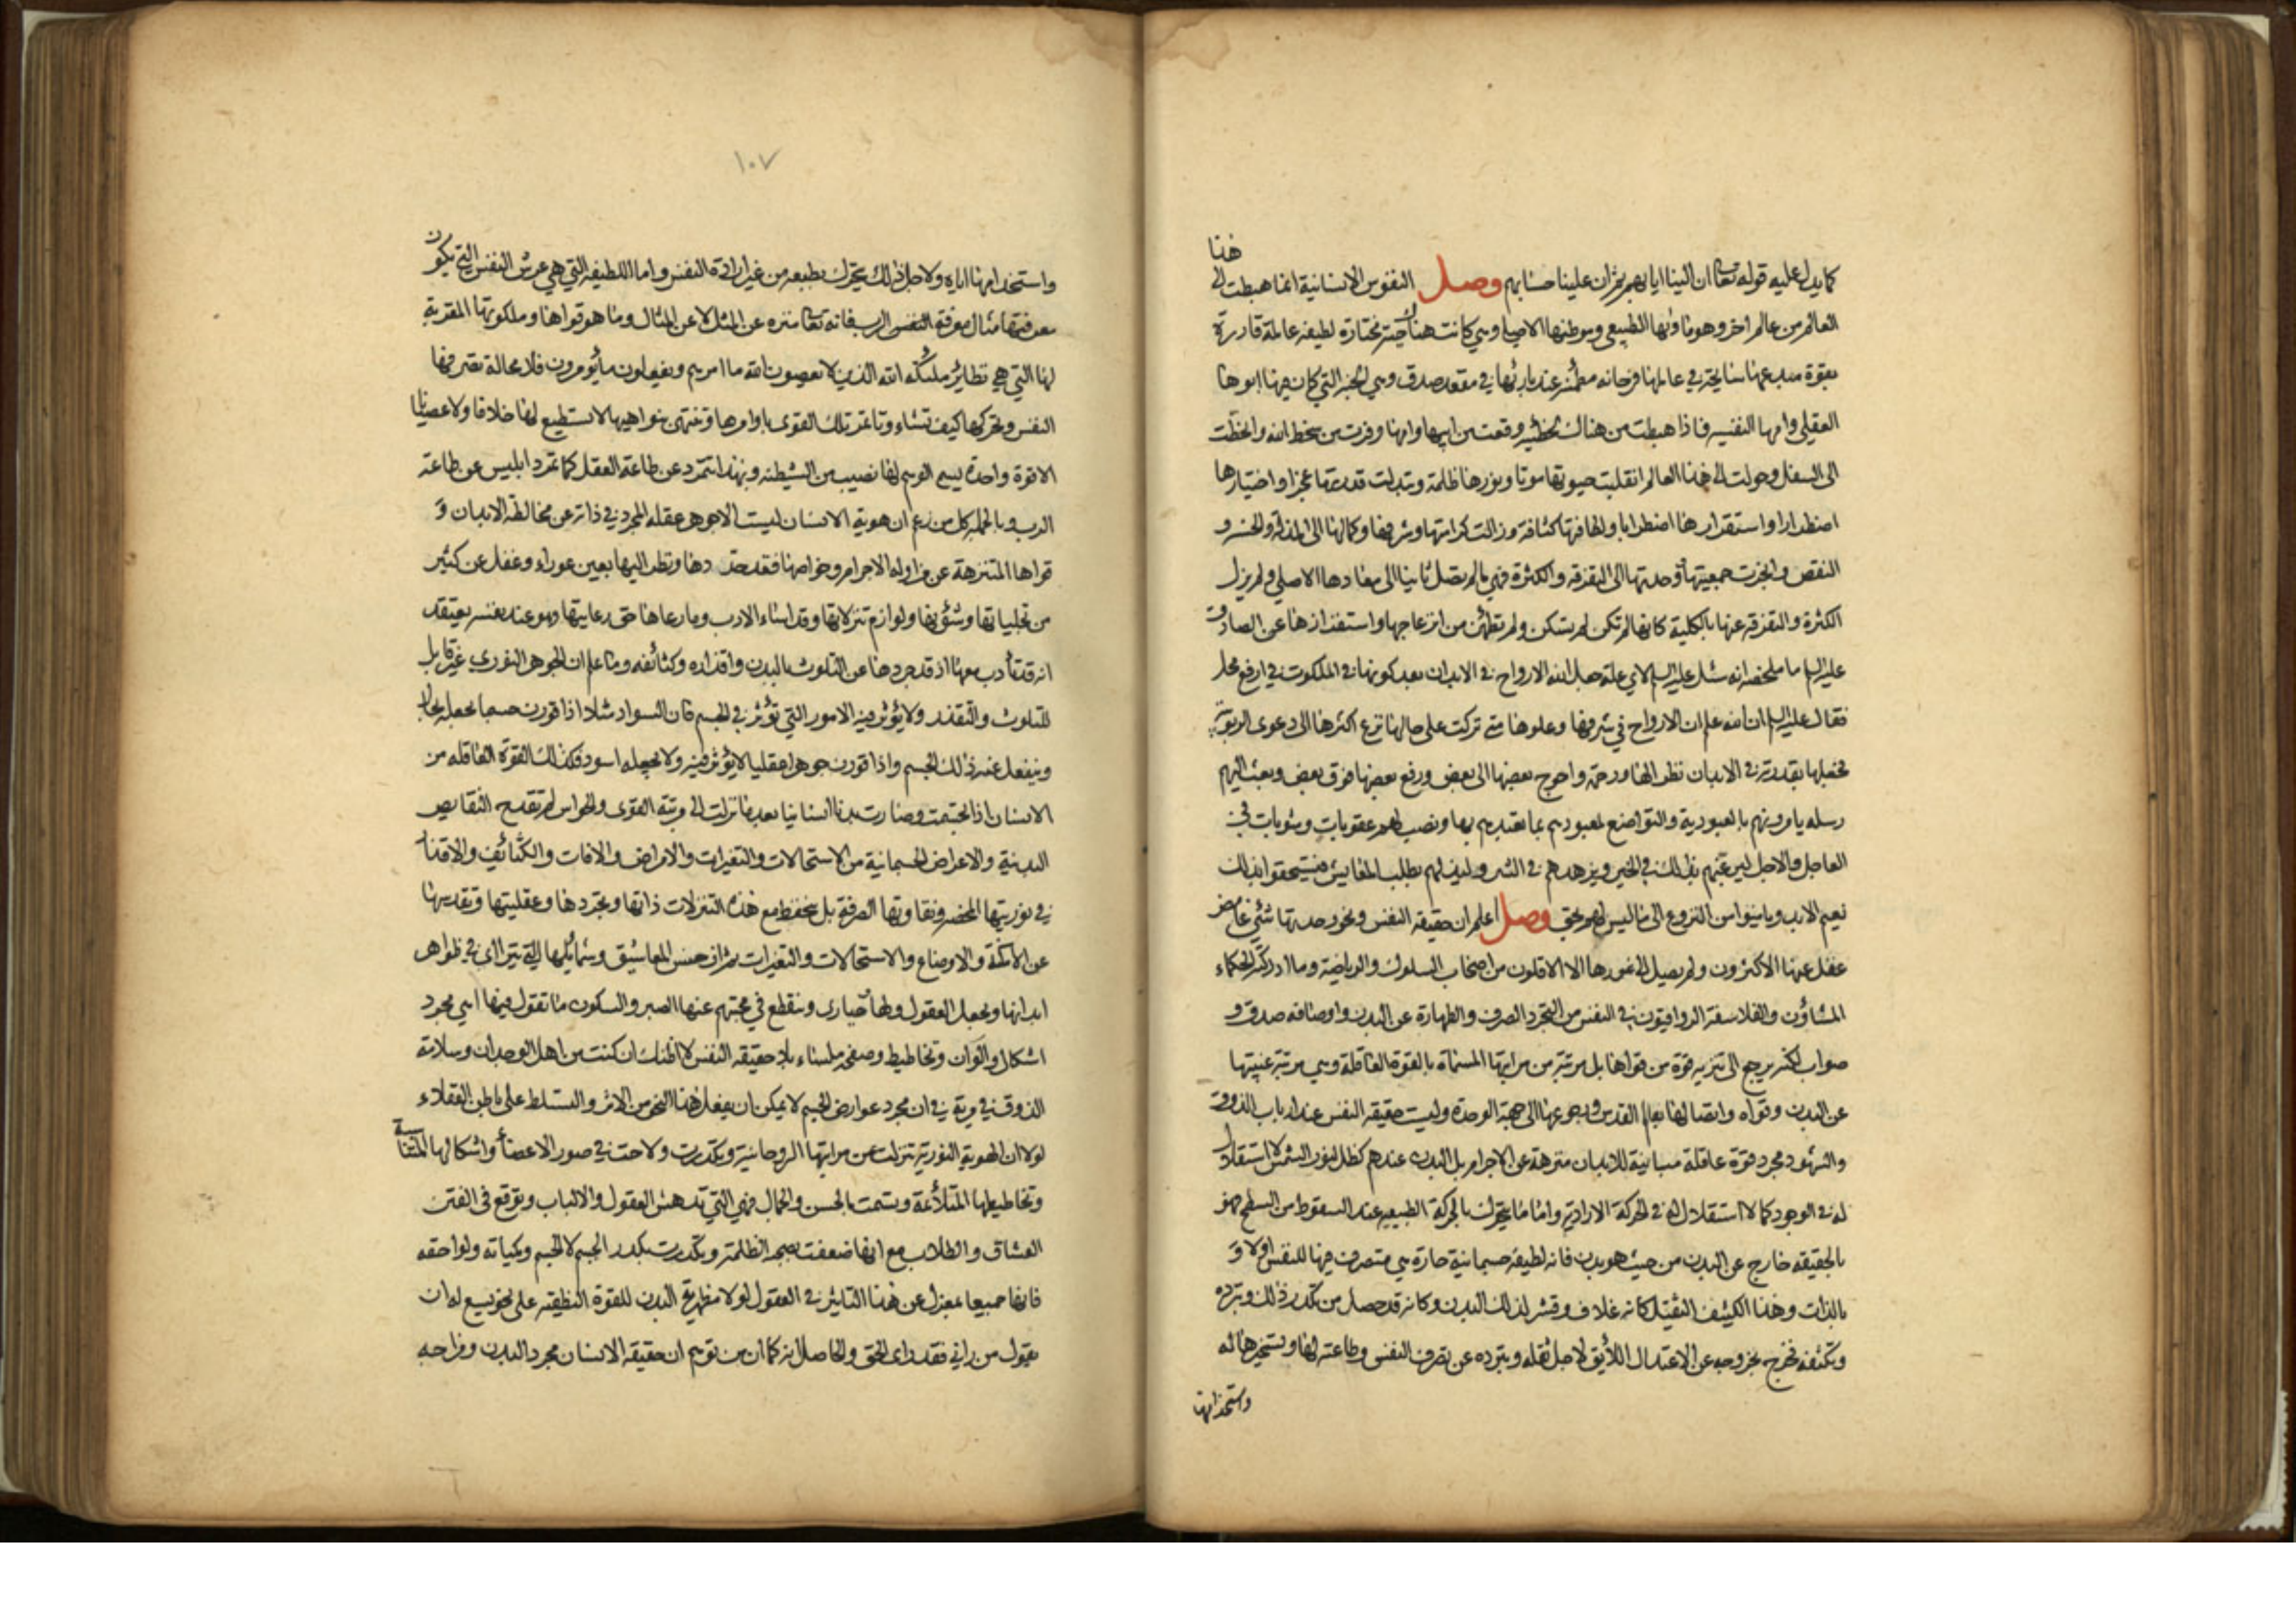 هذا
كما يدل عليه قوله تعالى ان الينا ايابهم ثم ان علينا حسابهم وصل النفوس الانسانية انما هبطت الى
العالم من عالم اخر وهو مأواها الطبيعي وموطنها الاصلي وهي كانت هناك حية مختارة لطيفة عالمة قادرة
بقوة مبدعها سايحة في عالمها فرحانه مطمئنة عند بارئها في مقعد صدق وهي الجنة التي كان فيها ابوها
العقلي وامها النفسية فاذا هبطت من هناك لخطيئة وقعت من ابيها وامها وفرت من سخط الله وانحطت
الى السفل وحولت الى هذا العالم انقلبت حيوتها موتا ونورها ظلمة وتبدلت قدرتها عجزا واختيارها
اضطرارا واستقرارها اضطرابا ولطافتها كثافة وزالت كرامتها وشرفها وكمالها الى المذلة والخسة و
النقص وانجرت جمعيتها ووحدتها الى التفرقة والكثرة فهي ما لم تصل ثانيا الى معادها الاصلي ولم يزل
الكثرة والتفرقة عنها بالكلية كانها لم تكن لم تسكن ولم تطمئن من انزعاجها واستفزازها عن الصادق
عليه السلم ما ملخصه انه سئل عليه السلم لاي علة جعل الله الارواح في الابدان بعد كونها في الملكوت في ارفع محل
فقال عليه السلم ان الله علم ان الارواح في شرفها وعلوها متى تركت على حالها نزع اكثرها الى دعوى الربوبية
فجعلها بقدرته في الابدان نظرا لها ورحمة واحوج بعضها الى بعض ورفع بعضها فوق بعض وبعث اليهم
رسله يامرونهم بالعبودية والتواضع لمعبودهم بما تعبدهم بها ونصب لهم عقوبات ومثوبات في
العاجل والاجل ليرغبهم بذلك في الخير ويزهدهم في الشر وليذلهم بطلب المعايش فيستحقوا بذلك
نعيم الابد ويامنوا من النزوع الى ما ليس لهم بحق وصل اعلم ان حقيقة النفس ونحو وحدتها شئ غامض
غفل عنها الاكثرون ولم يصل الى غورها الا الاقلون من اصحاب السلوك والرياضة وما ادركه الحكماء
المشاؤن والفلاسفة الرواقيون في النفس من التجرد الصرف والطهارة عن البدن واوصافه صدق و
صواب لكنه يرجع الى تنزيه قوة من قواها بل مرتبة من مراتبها المسماة بالقوة العاقلة وهي مرتبة غيبتها
عن البدن وقواه واتصالها بعالم القدس ورجوعها الى جهة الوحدة وليست حقيقة النفس عند ارباب الذوق
والشهود مجرد قوة عاقلة مباينة للابدان منزهة عن الاجرام بل البدن عندهم كظل لنور الشمس لا استقلال
له في الوجود كما لا استقلال له في الحركة الارادية واما ما يتحرك بالحركة الطبيعية عند السقوط من السطح فهو
بالحقيقة خارج عن البدن من حيث هو بدن فانه لطيفة جسمانية حارة هي متصرف فيها للنفس اولا و
بالذات وهذا الكثيف الثقيل كانه غلاف وقشر لذلك البدن وكانه قد حصل من تكدر ذلك وتبرده
وتكثفه فخرج بخروجه عن الاعتدال اللائق لاجل ثقله وتبرده عن تصرف النفس وطاعته لها وتسخيرها له
واستخدامها
١٠٧
واستخدامها اياه ولاجل ذلك يتحرك بطبعه من غير ارادة النفس واما اللطيفة التي هي عرش النفس التي يكون
معرفتها مثال معرفة النفس الرب فانه تعالى منزه عن المثل لا عن المثال وما هو قواها وملكوتها المقربة
لها التي هي نظائر ملئكة الله الذين لا يعصون الله ما امرهم ويفعلون ما يؤمرون فلا محالة تتصرف فيها
النفس وتحركها كيف تشاء وتاتمر تلك القوى باوامرها وتنتهي بنواهيها لا تستطيع لها خلافا ولا عصيانا
الا قوة واحدة يسمى الوهم لها نصيب من الشيطنة وبهذا تتمرد عن طاعة العقل كما تمرد ابليس عن طاعة
الرب وبالجملة كل من زعم ان هوية الانسان ليست الا جوهر عقله المجرد في ذاته عن مخالطة الابدان و
قواها المتنزهة عن مزاولة الاجرام وخواصها فقد حدّدها ونظر اليها بعين عوراء وغفل عن كثير
من تجلياتها وشؤنها ولوازم تنزلاتها وقد اساء الادب وما رعاها حق رعايتها وهو عند نفسه يعتقد
انه قد تأدب معها اذ قد جردها عن التلوث بالبدن واقذاره وكثائفه وما علم ان الجوهر النوري غير قابل
للتلوث والتقذر ولا يؤثر فيه الامور التي تؤثر في الجسم فان السواد مثلا اذا قورن جسما يجعله بحاله
وينفعل عنه ذلك الجسم واذا قورن جوهرا عقليا لا يؤثر فيه ولا يجعله اسود فكذلك القوة العاقلة من
الانسان اذا تجسمت وصارت بدنا انسانيا بعد ما نزلت الى مرتبة القوى والحواس لم تقدح النقايص
البدنية والاعراض الجسمانية من الاستحالات والتغيرات والامراض والافات والكثائف والاقذار
في نوريتها المحضة ونقاوتها الصرفة بل تحفظ مع هذه التنزلات ذاتها وتجردها وعقليتها وتقديسها
عن الامكنة والاوضاع والاستحالات والتغيرات ثم ان حسن المعاشيق وشمائلها التي تتراأى في ظواهر
ابدانها وتجعل العقول ولها حيارى وينقطع في محبتهم عنها الصبر والسكون ما تقول فيها اهي مجرد
اشكال والوان وتخاطيط وصفحة ملساء بلا حقيقة النفس لا اظنك ان كنت من اهل الوجدان وسلامة
الذوق في مرية في ان مجرد عوارض الجسم لا يمكن ان يفعل هذا النحو من الاثر والتسلط على باطن العقلاء
لولا ان الهوية النورية تنزلت عن مراتبها الروحانية وتكدرت ولاحت في صور الاعضاء واشكالها المتناسبة
وتخاطيطها المتلائمة وتسمت بالحسن والجمال فهي التي تدهش العقول والالباب وتوقع في الفتن
العشاق والطلاب مع انها ضعفت بصحبة الظلمة وتكدرت بكدر الجسم لا الجسم وكميّاته ولواحقه
فانها جميعا بمعزل عن هذا التاثير في العقول لولا مظهرية البدن للقوة النطقية على نحو يسع له ان
يقول من راني فقد راى الحق والحاصل انه كما ان من توهم ان حقيقة الانسان مجرد البدن ومزاجه